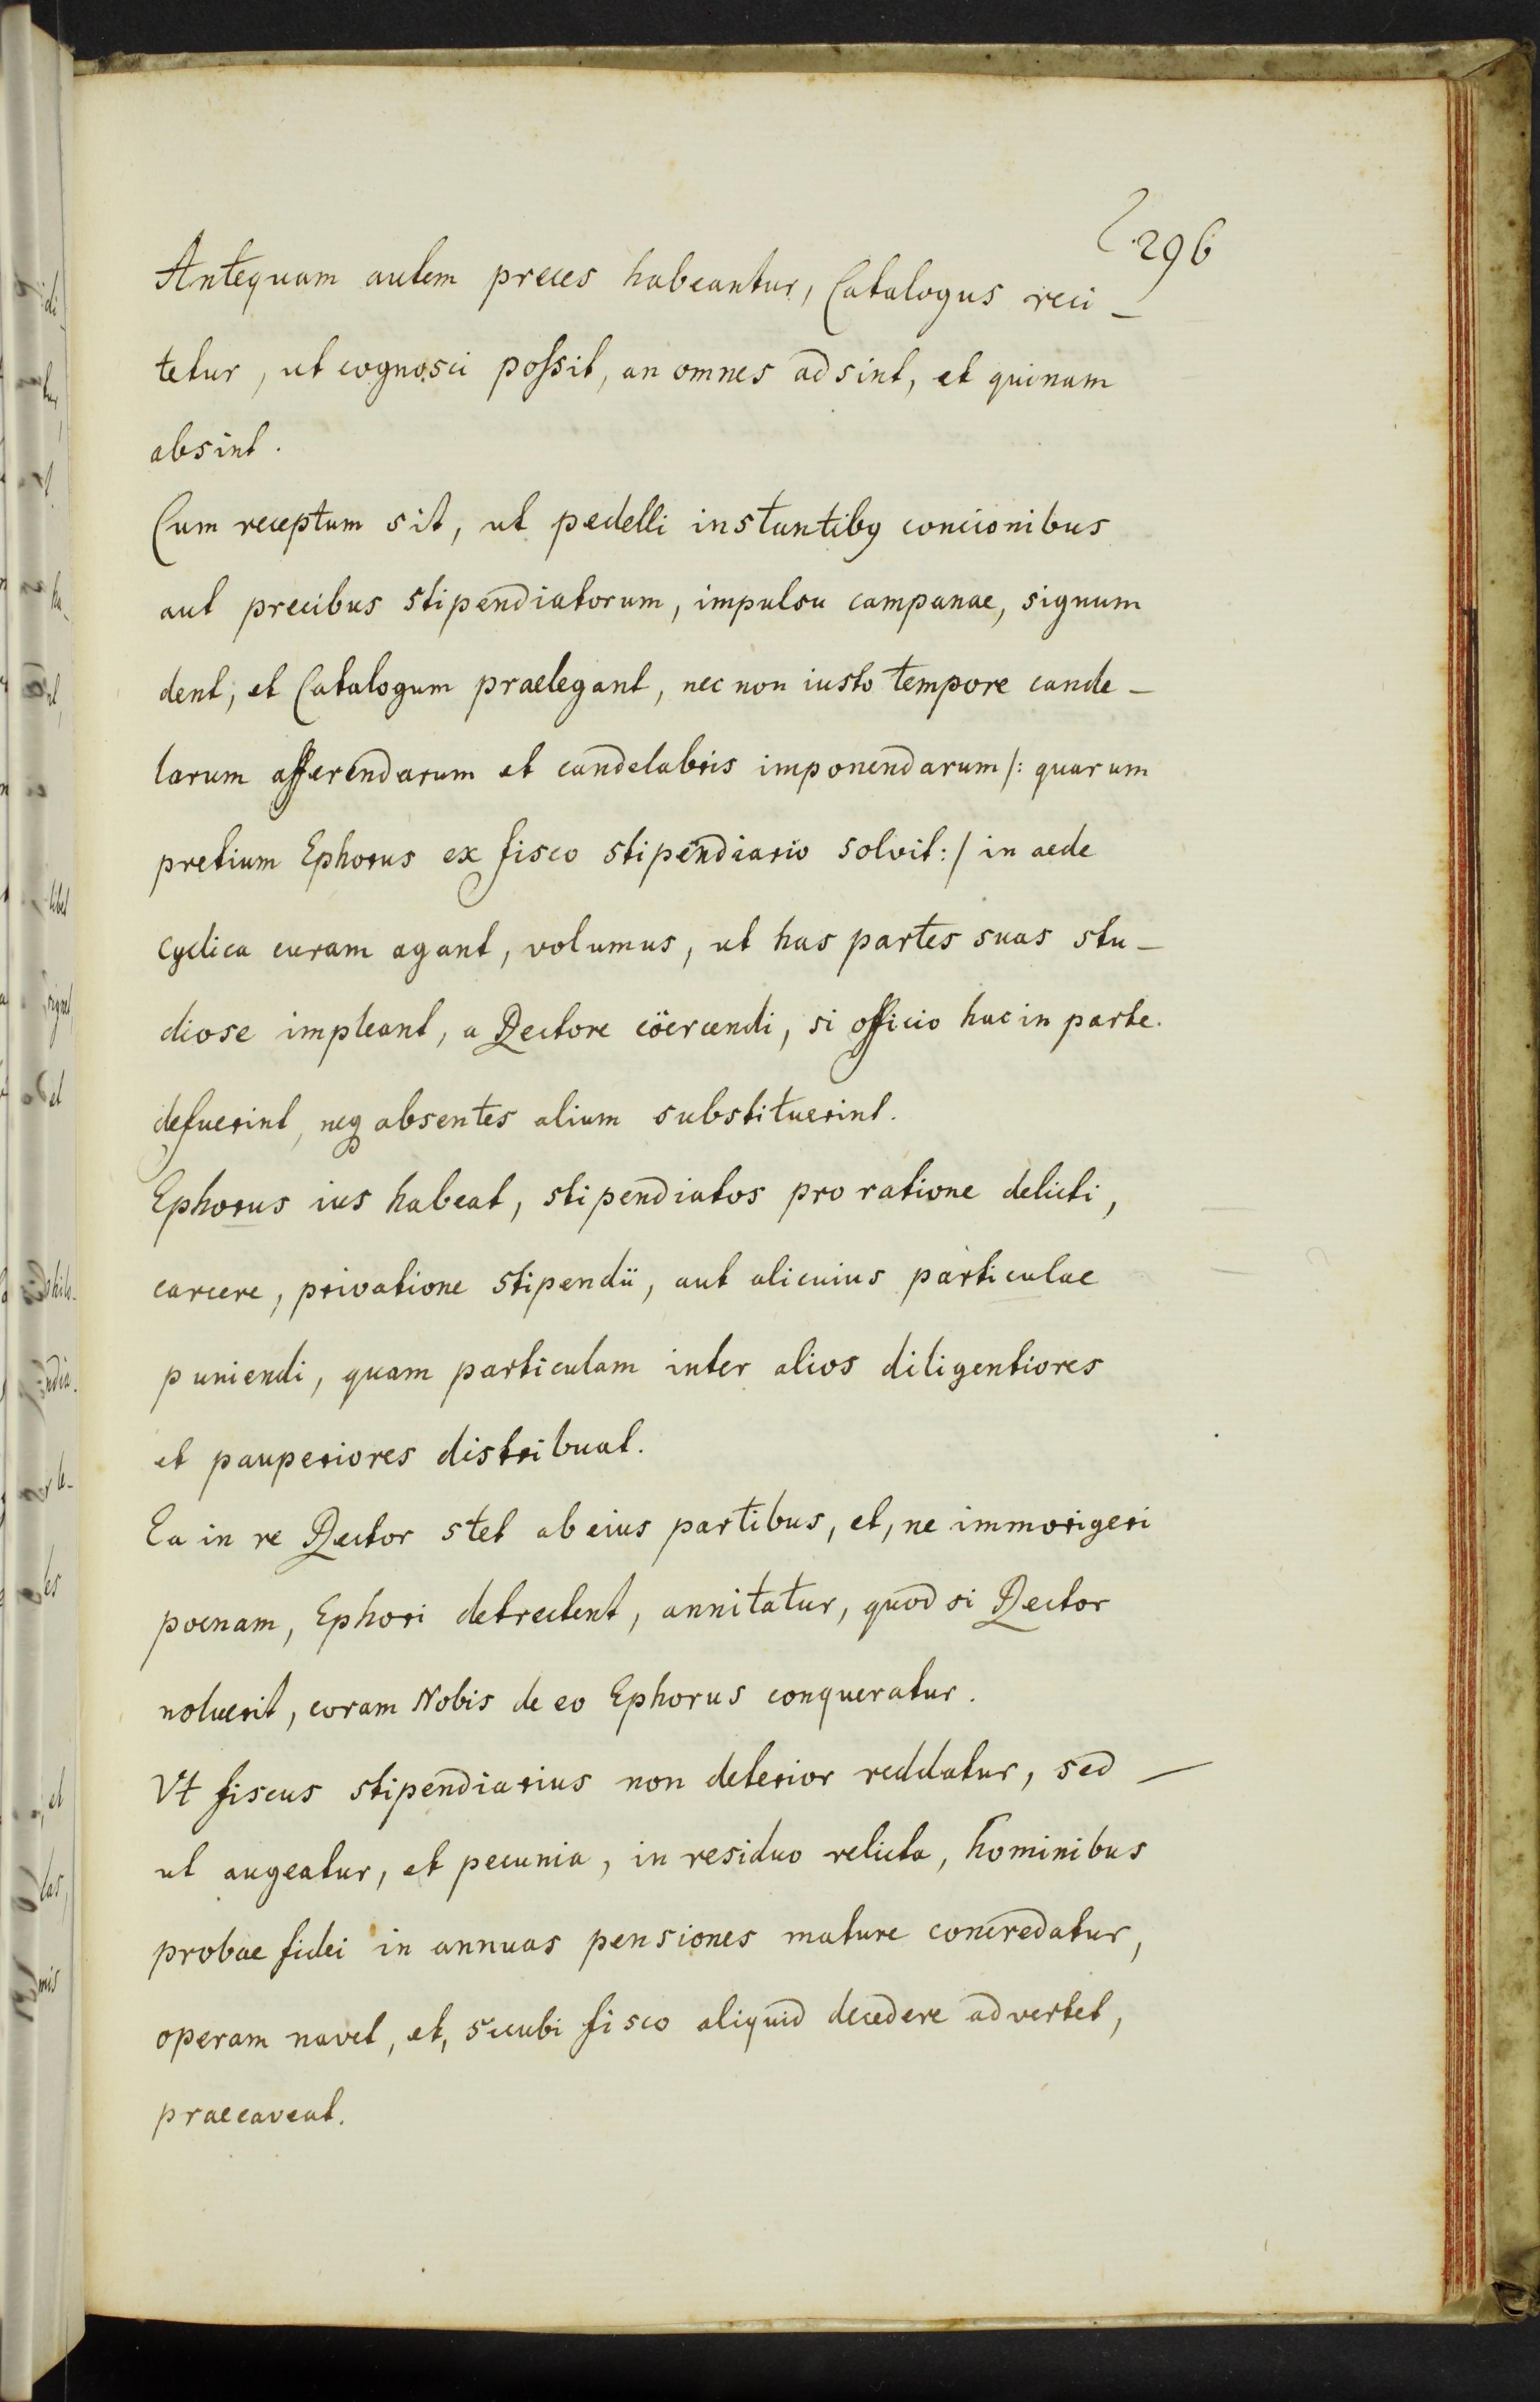 296
Antequam autem preces habeantur, Catalogus reci-
tetur, ut cognosci poßit, an omnes adsint, et quinam
absint.
Cum receptum sit, ut pedelli instantibꝰ concionibus
aut precibus stipendiatorum, impulsu campanae, signum
dent, et Catalogum praelegant, nec non iusto tempore cande-
larum afferendarum et candelabris imponendarum /: quarum
pretium Ephorus ex fisco stipendiario solvit :/ in aede
Cyclica curam agant, volumus, ut has partes suas stu-
diose impleant, a Rectore cöercendi, si officio hac in parte.
defuerint, neqꝫ absentes alium substituerint.
Ephorus ius habeat, stipendiatos pro ratione delicti,
carcere, privatione stipendii, aut alicuius particulae
puniendi, quam particulam inter alios diligentiores
et pauperiores distribuat.
Ea in re Rector stet ab eius partibus, et, ne immorigeri
poenam, Ephori detrectent, annitatur, quod si Rector
noluerit, coram Nobis de eo Ephorus conqueratur.
Vt fiscus stipendiarius non deterior reddatur, sed -
ut augeatur, et pecunia, in residuo relicta, hominibus
probae fidei in annuas pensiones mature concredatur,
operam navet, et, sicubi fisco aliquid decedere advertet,
praecaveat.